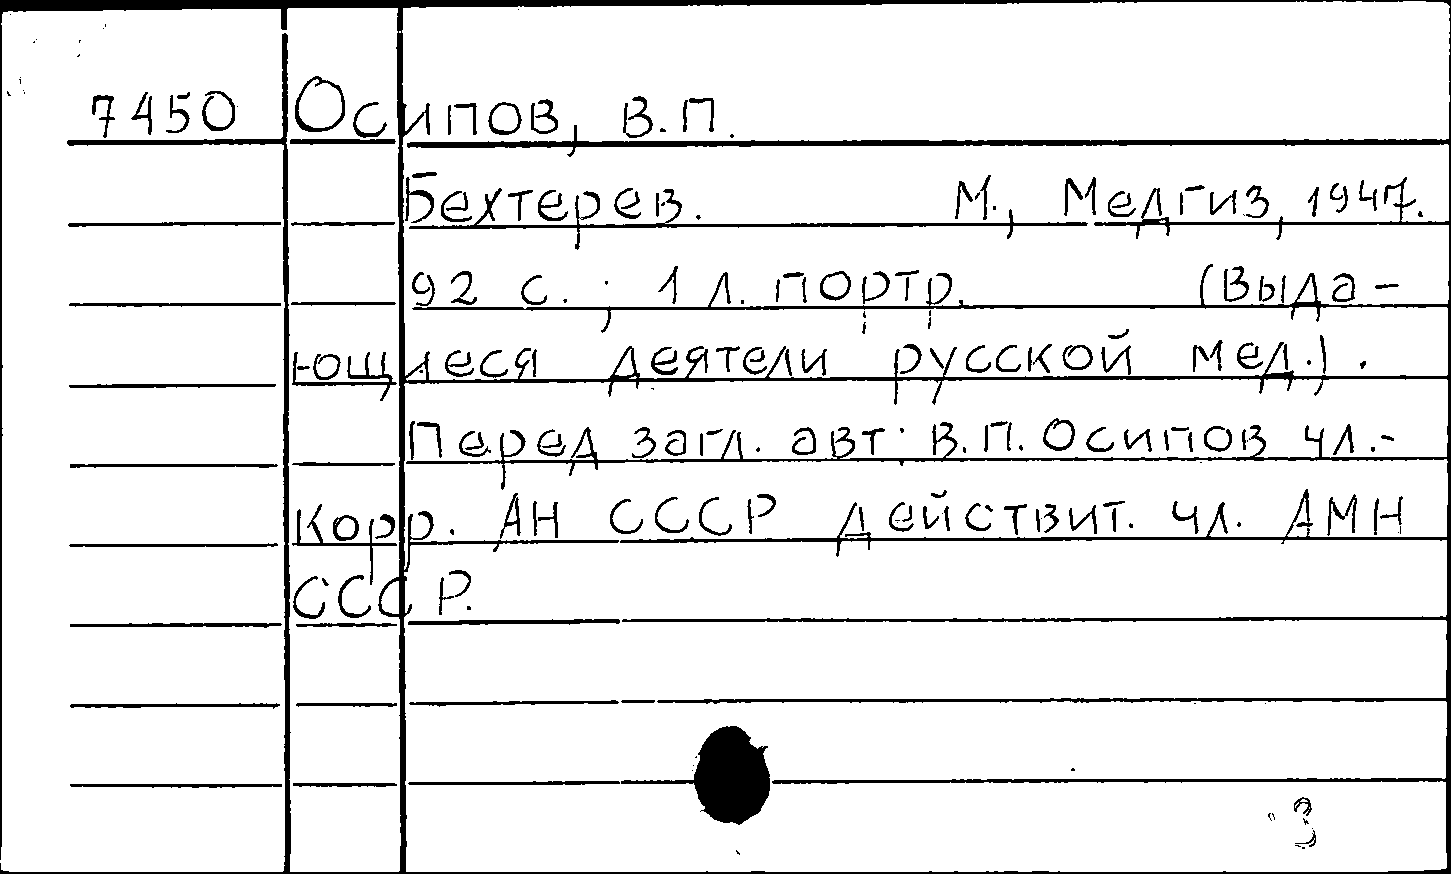 7450 Осипов, В.П.
Бехтерев. М., Медгиз, 1947.
92 с. ; 1 л. портр. (Выда-
ющиеся деятели русской мед.).
Перед загл. авт: В.П. Осипов чл.-
корр. АН СССР действит. чл. АМН
СССР.
3